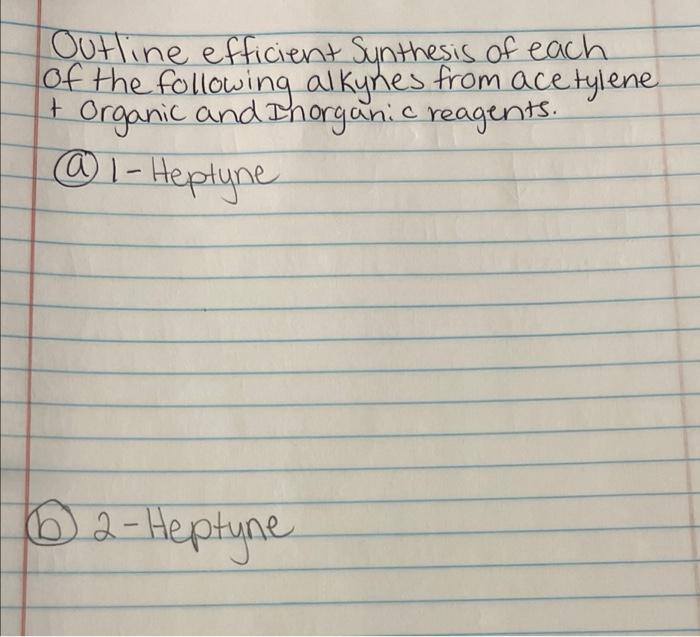 Outline efficient Synthesis of each
of the following alkynes from acetylene
+ Organic and Inorganic reagents.
(a) 1-Heptyne
(b) 2-Heptyne